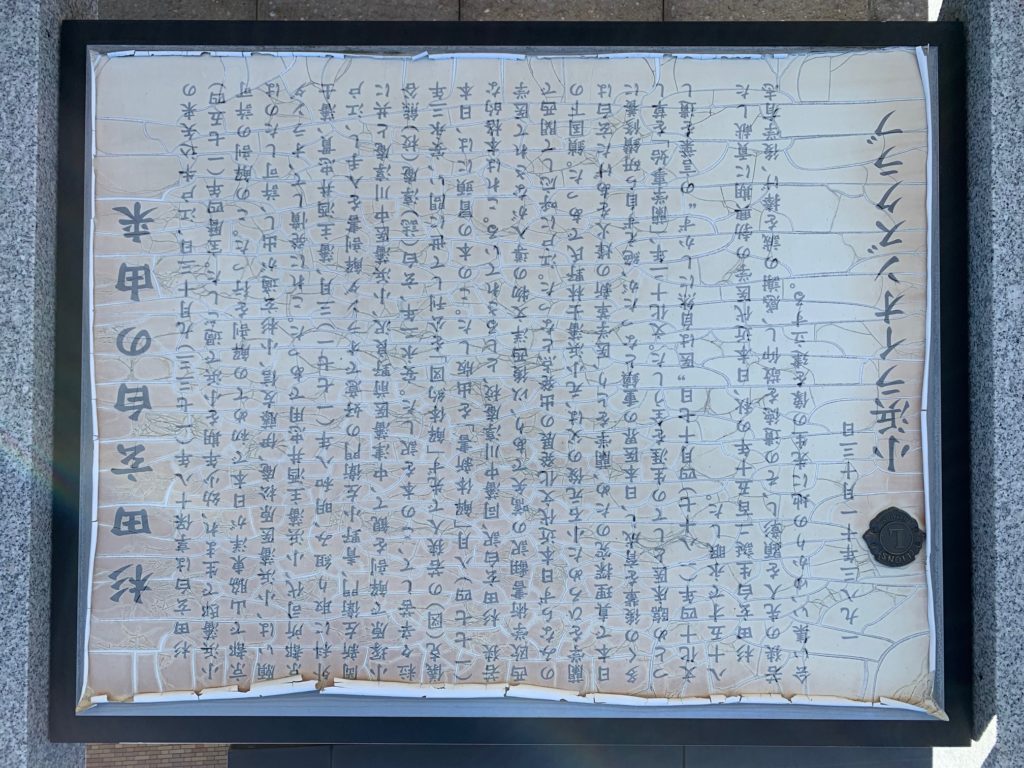 杉田玄白の由来
杉田玄白は享保十八年(一七三三)九月十三日、江戸牛込矢来の
小浜藩邸で生まれ、幼少年期を小浜で過ごした。宝暦四年(一七五四)
京都で山脇東洋が日本で初めての解剖を行った。この解剖の許可
願いは、小浜藩医原松庵、伊藤友信、小杉玄適が出し、許可したのは
京都所司代、小浜藩主酒井忠用であった。これに発憤して、オランダ
外科に取り組み、明和八年(一七七一)三月、藩主酒井忠貫、藩士
岡新左衛門、青野小左衛門の好意でオランダ解剖書を入手し、江戸
小塚原で解剖を観て、中津藩医前野良沢、小浜藩医中川淳庵と共に
粒々辛苦して、この本を訳した。安永二年、玄白(誌)淳庵(校)熊谷
儀克(図)の若狭人で先ず「解体約図」を公刊して世に問い、安永三年
(一七七四)八月「解体新書」を出版した。この本の冒頭には、日本
若狭 杉田玄白訳、同藩中川淳庵校、としるされている。これは本格的な
西欧学術書翻訳の嚆矢であり、以後西洋文物の導入がなされて医学
のみならず日本近代文化発展の出発点となった。江戸に呼応して関西で
蘭学をひろめた小石元俊の父は、元小浜藩士林野氏であった。鎖国下の
日本で真理探究のため、蘭学をとり、医学革新の烽火をあげた玄白は
多くの後輩を育成し、日本医界の重鎮となったが、絶えず自ら研鑽修養に
つとめ臨床医としての生涯を全うした。文化十二年、「蘭学事始」を草し
文化十四年(一八十七)四月十七日〝医は自然にしかず〟の言葉を遺し
八十五才で永眠した。
杉田玄白生誕二百五十年の秋、日本近代医学の勃興期に貢献した
若狭の先人を顕彰し、その遺徳を敬仰し、感謝の誠を捧げ、後学有志
会い集い、ゆかりの地に先生の像を建立する。
一九八三年十一月十三日
小浜ライオンズクラブ
LIONS
L